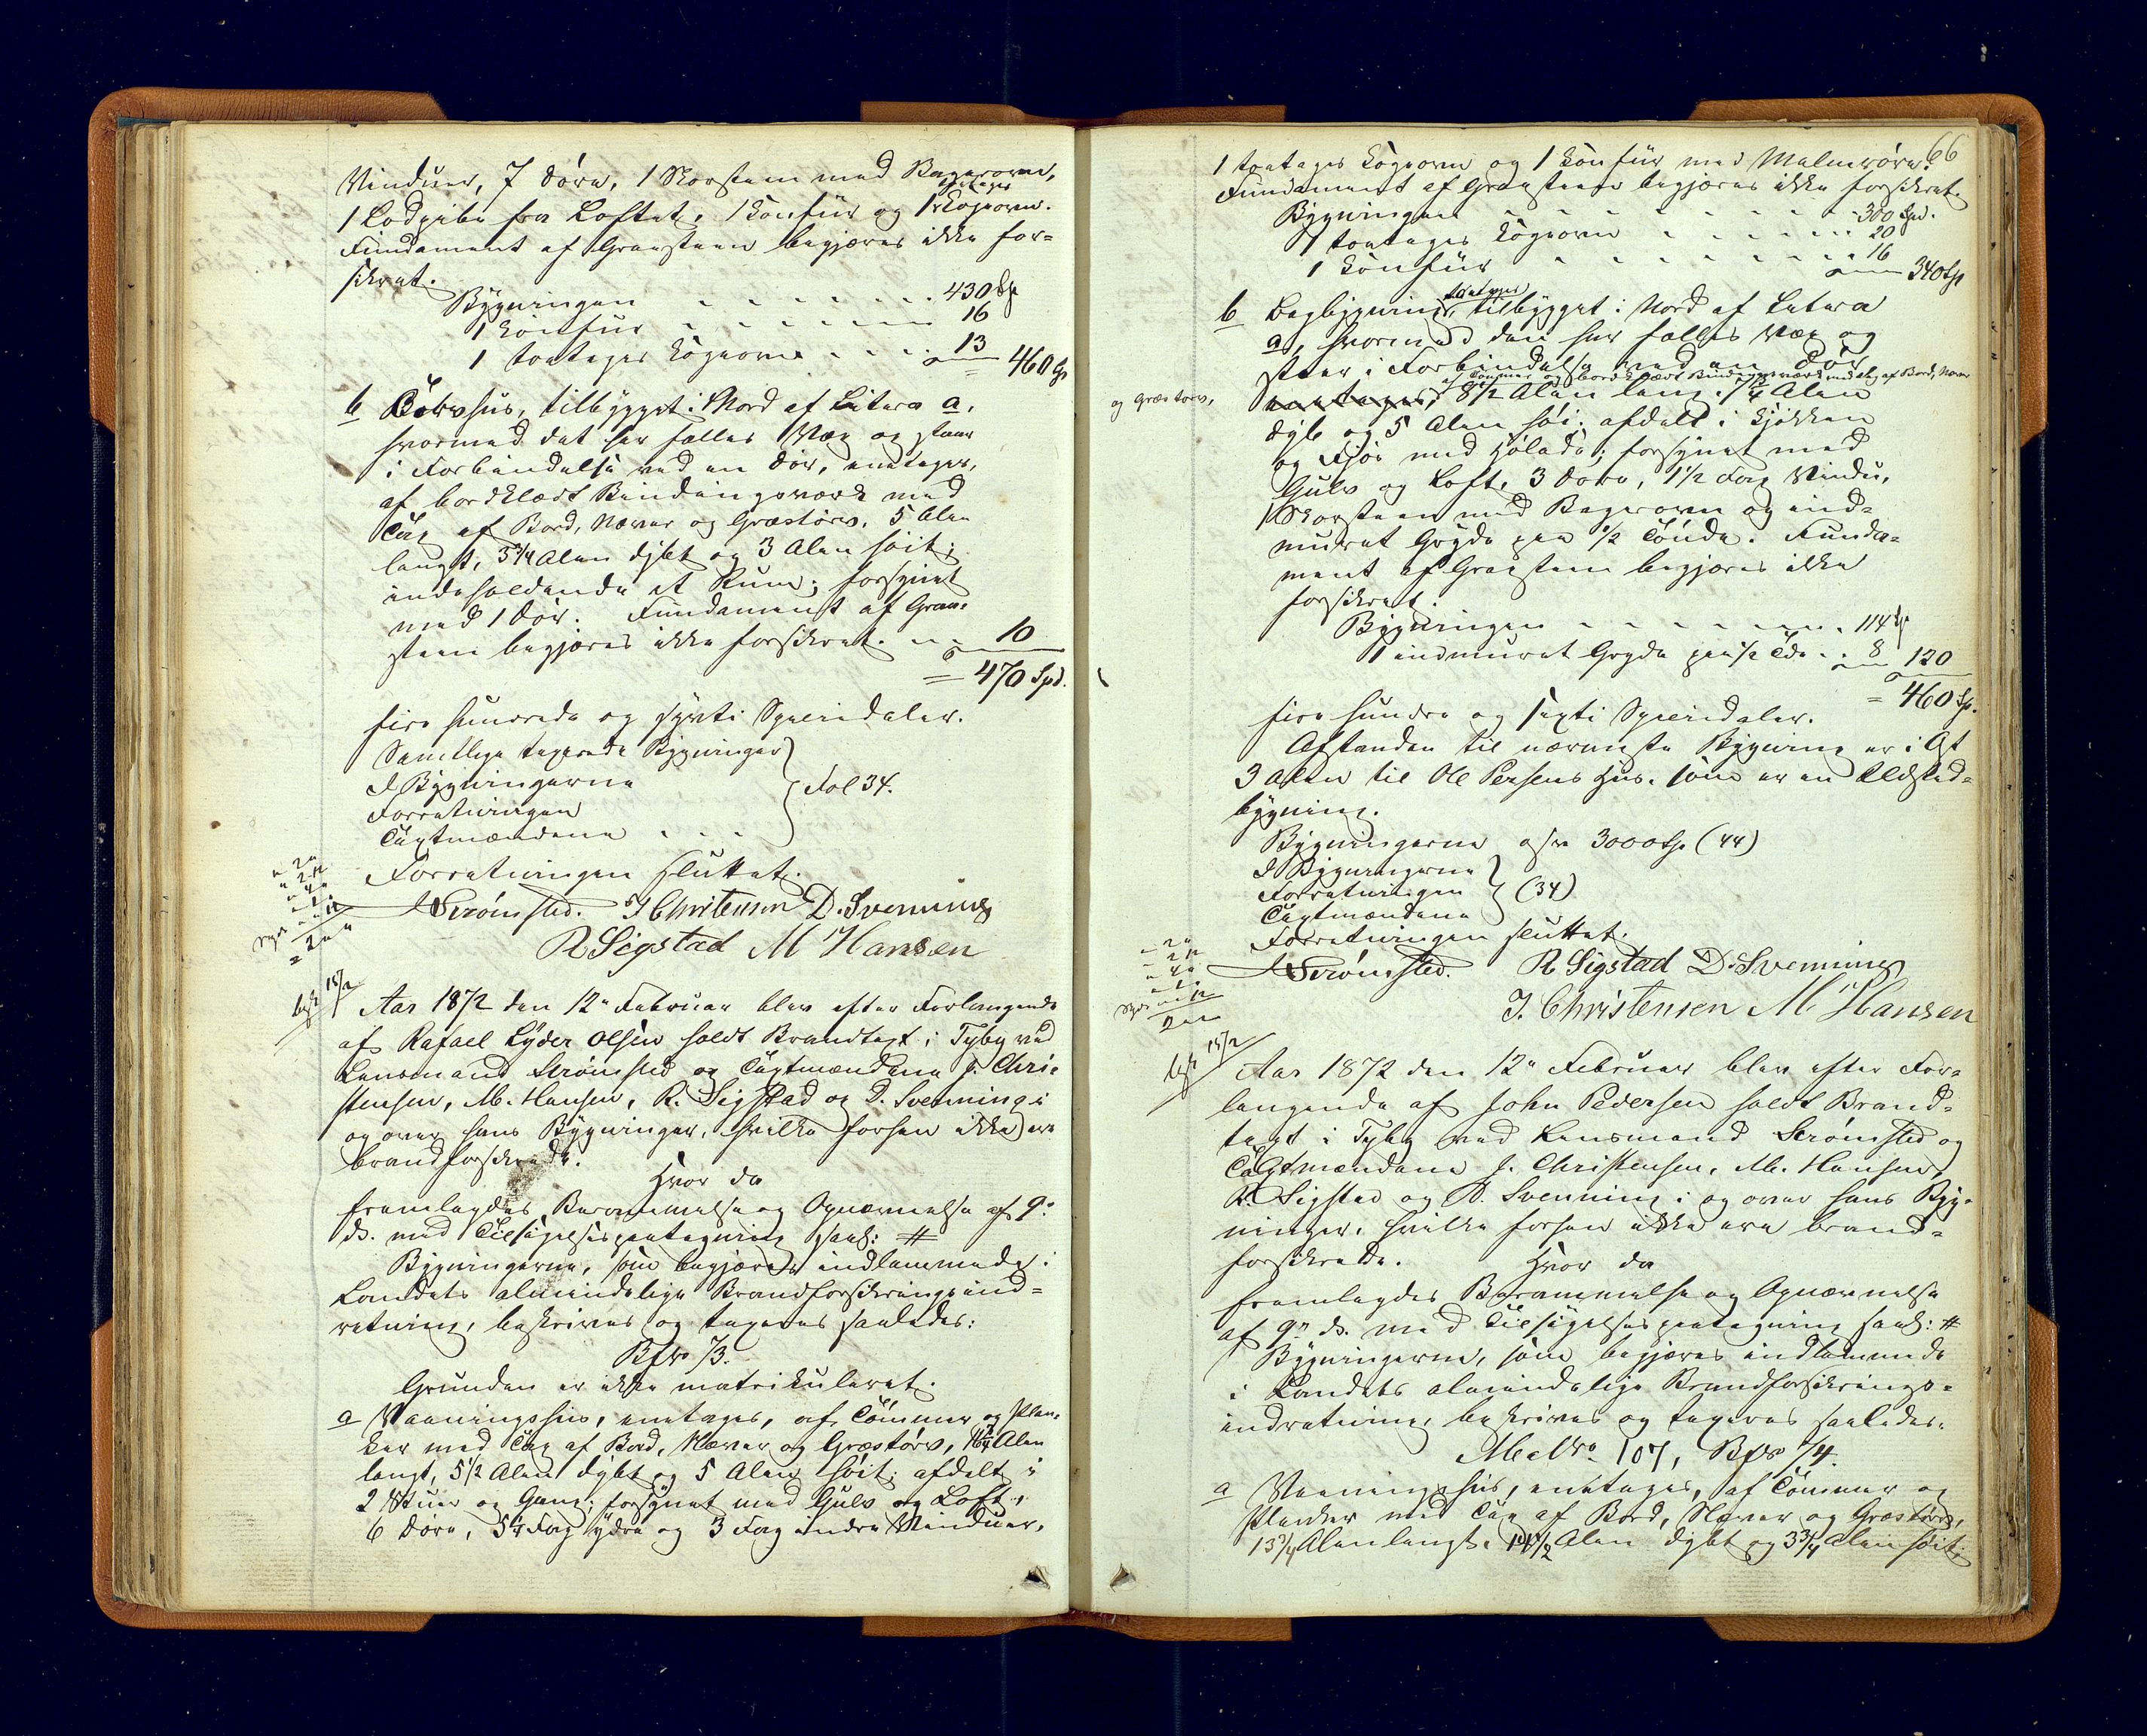 Vinduer, 7 Døre, 1 Skorsteen med Bagerovn,
1 Lodpibe fra Loftet, 1 Komfür og 1 Kogeovn.
Fundament af Graasteen begjæres ikke for=
sikret.
Bygningen - - - - - - - 430 Sp
1 Komfür - - - - - - - 16
1 toetages Kogeovn - - - - 13
= 460 Sp
b Tørvhus, tilbygget i Nord af Litera a,
hvormed det har fælles Væg og staar
i Forbindelse ved en Dør, eenetages,
af bordklædt Bindingsværk med
Tag af Bord, Næver og Græstørv, 5 Alen
langt, 3 3/4 Alen dybt og 3 Alen høit;
indeholdende et Rum; forsynet
med 1 Dør. Fundament af Graa=
steen begjæres ikke forsikret. - - 10
= 470 Spd.
fire hundrede og sytti Speciedaler.
Samtlige taxerede Bygninger
I Bygningerne
Forretningen
Taxtmændene - - -
Fol 34.
Forretningen sluttet.
Strømsted. J Christensen D. Svenning
R Sigstad M Hansen
15/2
Aar 1872 den 12" Februar blev efter Forlangende
af Rafael Lyder Olsen holdt Brandtaxt i Tyby ved
Lensmand Strømsted og Taxtmændene J. Chri=
stensen, M. Hansen, R. Sigstad og D. Svenning i
og over hans Bygninger, hvilke forhen ikke ere
brandforsikrede.
Hvor da
fremlagdes Berammelse og Opnævnelse af 9"
ds. med Tilsigelsespaategning saal: #
Bygningerne, som begjæres indlemmede i
Landets almindelige Brandforsikringsind=
retning, beskrives og taxeres saaledes:
B No 73.
Grunden er ikke matrikuleret.
a Vaaningshus, eenetages, af Tømmer og Plan=
ker med Tag af Bord, Næver og Græstørv, 16 1/4 Alen
langt, 5 1/2 Alen dybt og 5 Alen høit; afdelt i
2 Stuer og Gang; forsynet med Gulv og Loft,
6 Døre, 5 1/4 Fag ydre og 3 Fag indre Vinduer,
66
1 toetages Kogeovn og 1 Komfür med Malmrør.
Fundament af Graasteen begjæres ikke forsikret
Bygningen - - - - - - - - 300 Spd.
1 toetages Kogeovn - - - - - - 20
1 Komfür - - - - - - - - 16
340 Sp
b Bagbygning, toetages, tilbygget i Nord af Litera
a, hvormed den har fælles Væg og
staar i Forbindelse med en Dør
af Tømmer og bordklædt Bindingsværk med Tag af Bord, Næver
og Græstørv,
8 1/2 Alen lang, Alen
dyb og 5 Alen høi; afdelt i Kjøkken
og Fjøs med Hølade; forsynet med
Gulv og Loft, 3 Døre, 1 1/2 Fag Vindu,
1 Skorsteen med Bagerovn og ind=
muret Gryde paa 1/2 Tønde. Funda=
ment af Graasteen begjæres ikke
forsikret.
Bygningen - - - - - - - 114 Sp
1 indmuret Gryde paa 1/2 Tde - - 8 120
= 460 Sp.
fire hundre og sexti Speciedaler.
Afstanden til nærmeste Bygning er i Øst
3 Alen til Ole Persens Hus, som er en Ildsted=
bygning.
Bygningerne o/er 3000 Sp (44)
I Bygningerne
Forretningen
Taxtmændene
(34)
Forretningen sluttet.
Strømsted. R Sigstad D. Svenning
J. Christensen M Hansen
15/2
Aar 1872 den 12" Februar blev efter For=
langende af John Pedersen holdt Brand=
taxt i Tyby ved Lensmand Strømsted og
Taxtmændene J. Christensen, M. Hansen,
R. Sigstad og D. Svenning i og over hans Byg=
ninger, hvilke forhen ikke ere brand=
forsikrede. Hvor da
fremlagdes Berammelse og Opnævnelse
af 9" ds. med Tilsigelsespaategning saal: #
Bygningerne, som begjæres indlemmede
i Landets almindelige Brandforsikrings=
indretning, beskrives og taxeres saaledes:
No. 107, B No 74.
a Vaaningshus, eenetages, af Tømmer og
Planker med Tag af Bord, Næver og Græstørv,
13 3/4 Alen langt, Alen dybt og 3 3/4 Alen høit;